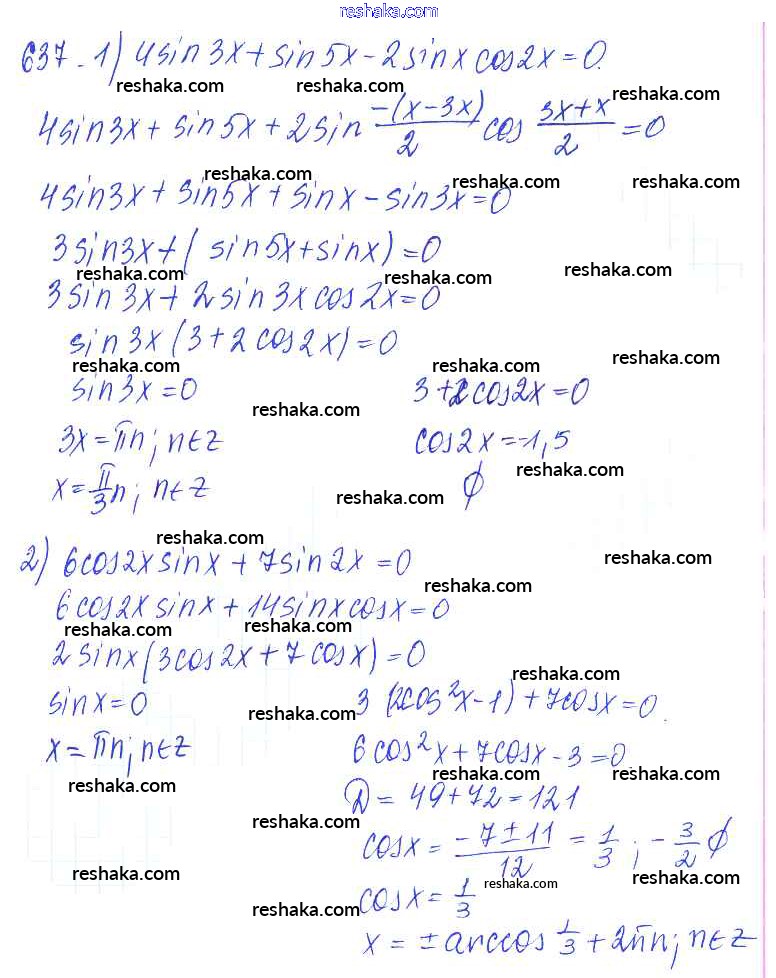 reshaka.com
637. 1) 4sin3x + sin5x - 2sinx cos2x = 0.
reshaka.com reshaka.com reshaka.com
4sin3x + sin5x + 2sin -(x-3x)/2 cos 3x+x/2 = 0
reshaka.com reshaka.com reshaka.com
4sin3x + sin5x + sinx - sin3x = 0
3sin3x + (sin5x + sinx) = 0
reshaka.com reshaka.com reshaka.com
3sin3x + 2sin3x cos2x = 0
sin3x (3 + 2cos2x) = 0
reshaka.com reshaka.com reshaka.com
sin3x = 0 3 + 2cos2x = 0
reshaka.com
3x = πn; n∈Z cos2x = -1,5
reshaka.com
x = π/3 n; n∈Z ∅
reshaka.com
reshaka.com reshaka.com
2) 6cos2x sinx + 7sin2x = 0
reshaka.com
6cos2x sinx + 14sinx cosx = 0
reshaka.com reshaka.com
2sinx (3cos2x + 7cosx) = 0
reshaka.com
sinx = 0 3 (2cos²x - 1) + 7cosx = 0.
reshaka.com
x = πn; n∈Z 6cos²x + 7cosx - 3 = 0
reshaka.com reshaka.com reshaka.com
D = 49 + 72 = 121
reshaka.com
cosx = -7±11/12 = 1/3; -3/2 ∅
reshaka.com reshaka.com reshaka.com
cosx = 1/3
reshaka.com
x = ±arccos 1/3 + 2πn; n∈Z